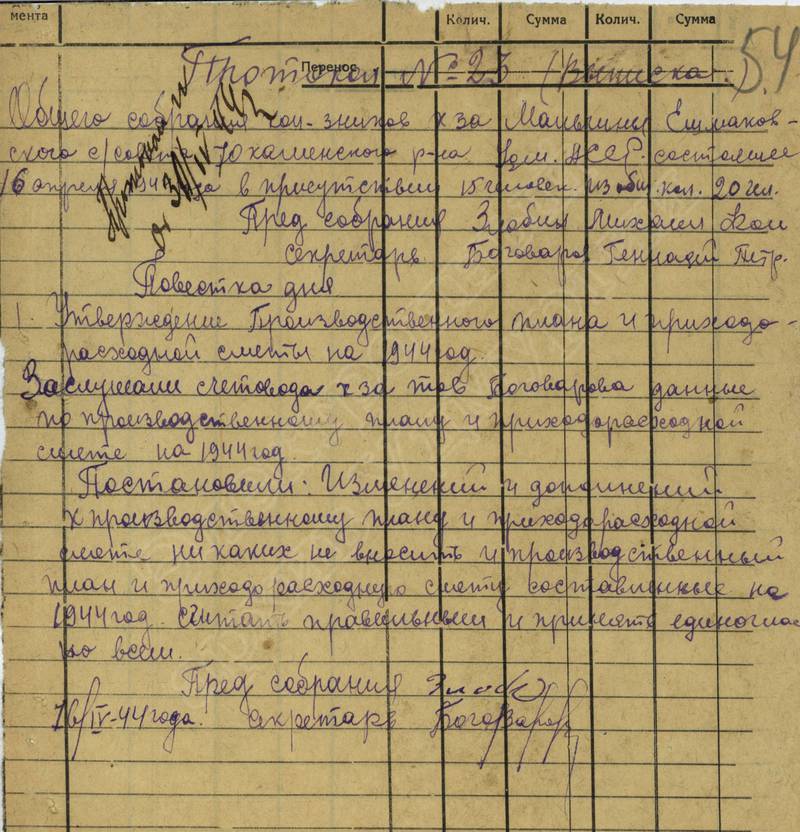 мента Колич. Сумма Колич. Сумма
Перенос
54
Протокол № 23 (Выписка)
Общего собрания кол-зников к-за Маныгины Ешмаков-
ского с/совета Юкаменского р-на Удм. АССР. состоявшее
16 апреля 1944 года в присутствии 15 человек. из общ. кол. 20 чел.
Пред собрания Злобин Михаил
секретарь Боговаров Геннадий Петр.
Повестка дня
1. Утверждение Производственного плана и приходо-
расходной сметы на 1944 год.
Заслушали счетовода к-за тов Боговарова данные
по производственному плану и приходорасходной
смете на 1944 год.
Постановили: Изменений и дополнений
к производственному плану и приходорасходной
смете ни каких не вносить и производственный
план и приходо расходную смету составленные на
1944 год. считать правельным и принять единоглас
но всем.
Пред собрания Злобин
16/IV-44 года. секретарь Боговаров